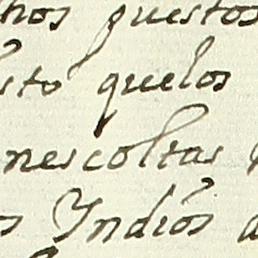 hos puestos
sto quelos
nescoltas
s Yndios a